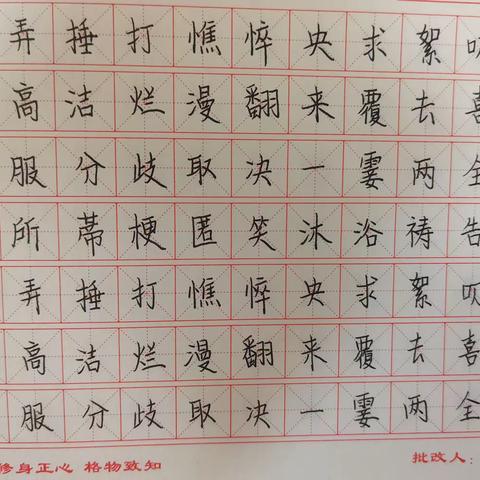 弄捶打憔悴央求絮叨
高洁烂漫翻来覆去喜
服分歧取决一霎两全
所蒂梗匿笑沐浴祷告
弄捶打憔悴央求絮叨
高洁烂漫翻来覆去喜
服分歧取决一霎两全
修身正心 格物致知 批改人: